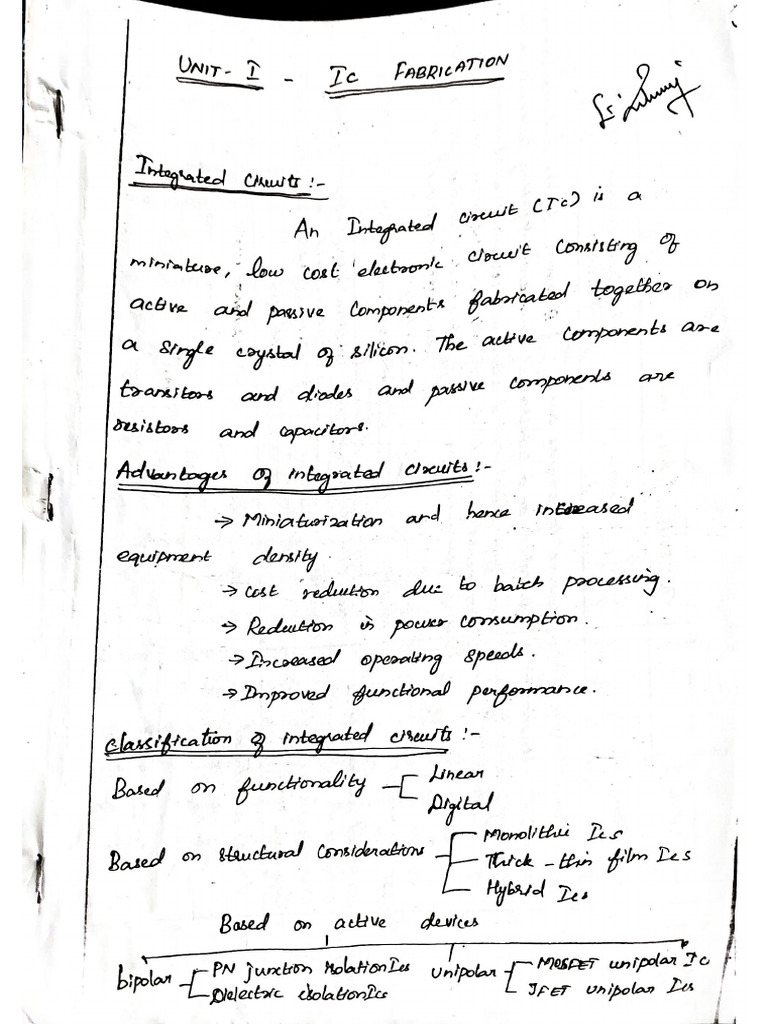 UNIT - I - Ic FABRICATION
Integrated circuits :-
An Integrated circuit (Ic) is a
miniature, low cost electronic circuit consisting of
active and passive components fabricated together on
a single crystal of silicon. The active components are
transitors and diodes and passive components are
resistors and capacitors.
Advantages of integrated circuits :-
→ Miniaturization and hence increased
equipment density.
→ cost reduction due to batch processing.
→ Reduction in power consumption.
→ Increased operating speeds.
→ Improved functional performance.
Classification of integrated circuits :-
Based on functionality
Linear
Digital
Based on structural considerations
Monolithic Ics
Thick - thin film Ics
Hybrid Ics
Based on active devices
bipolar
PN junction isolation Ics
Dielectric isolation Ics
unipolar
MOSFET unipolar Ic
JFET unipolar Ics